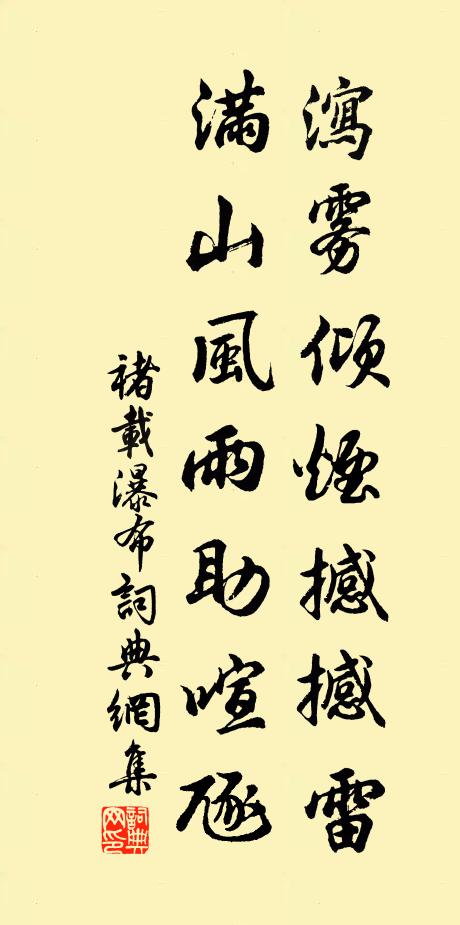 瀉雾傾煙撼撼雷
滿山風雨助喧豗
褚載瀑布詞典網集
詞典网印